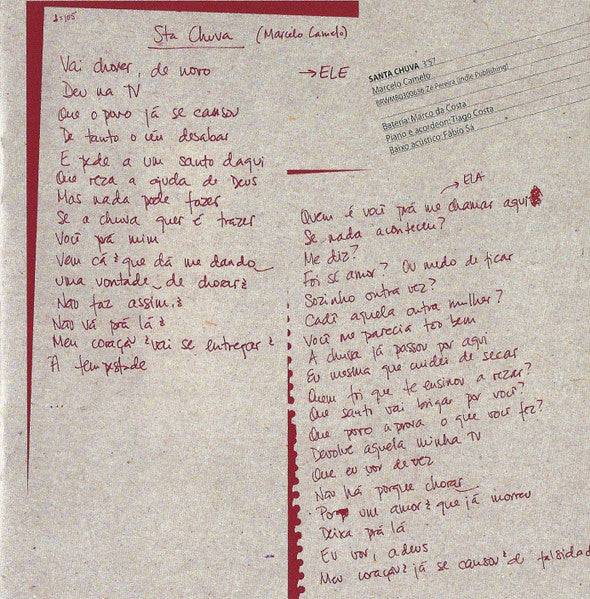 1=105
Sta Chuva (Marcelo Camelo)
Vai chover, de novo
→ ELE
Deu na TV
Que o povo já se cansou
De tanto o céu desabar
E pede a um santo daqui
Que reza a ajuda de Deus
Mas nada pode fazer
Se a chuva quer é trazer
Você prá mim
Vem cá que dá me dando
uma vontade de chorar
Não faz assim
Não vá prá lá
Meu coração vai se entregar
À tempestade
...
SANTA CHUVA 3'57
Marcelo Camelo
BRWMR0300636 Zé Pereira (Indie Publishing)
Bateria: Marco da Costa
Piano e acordeon: Tiago Costa
Baixo acústico: Fábio Sá
→ ELA
Quem é você prá me chamar aqui
Se nada aconteceu?
Me diz?
Foi só amor? Ou medo de ficar
Sozinho outra vez?
Cadê aquela outra mulher?
Você me parecia tão bem
A chuva já passou por aqui
Eu mesma que cuidei de secar
Quem foi que te ensinou a rezar?
Que santo vai brigar por você?
Que povo aprova o que você fez?
Devolve aquela minha TV
Que eu vou de vez
Não há porque chorar
Por um amor que já morreu
Deixa prá lá
Eu vou, adeus
Meu coração já se cansou de falsidad